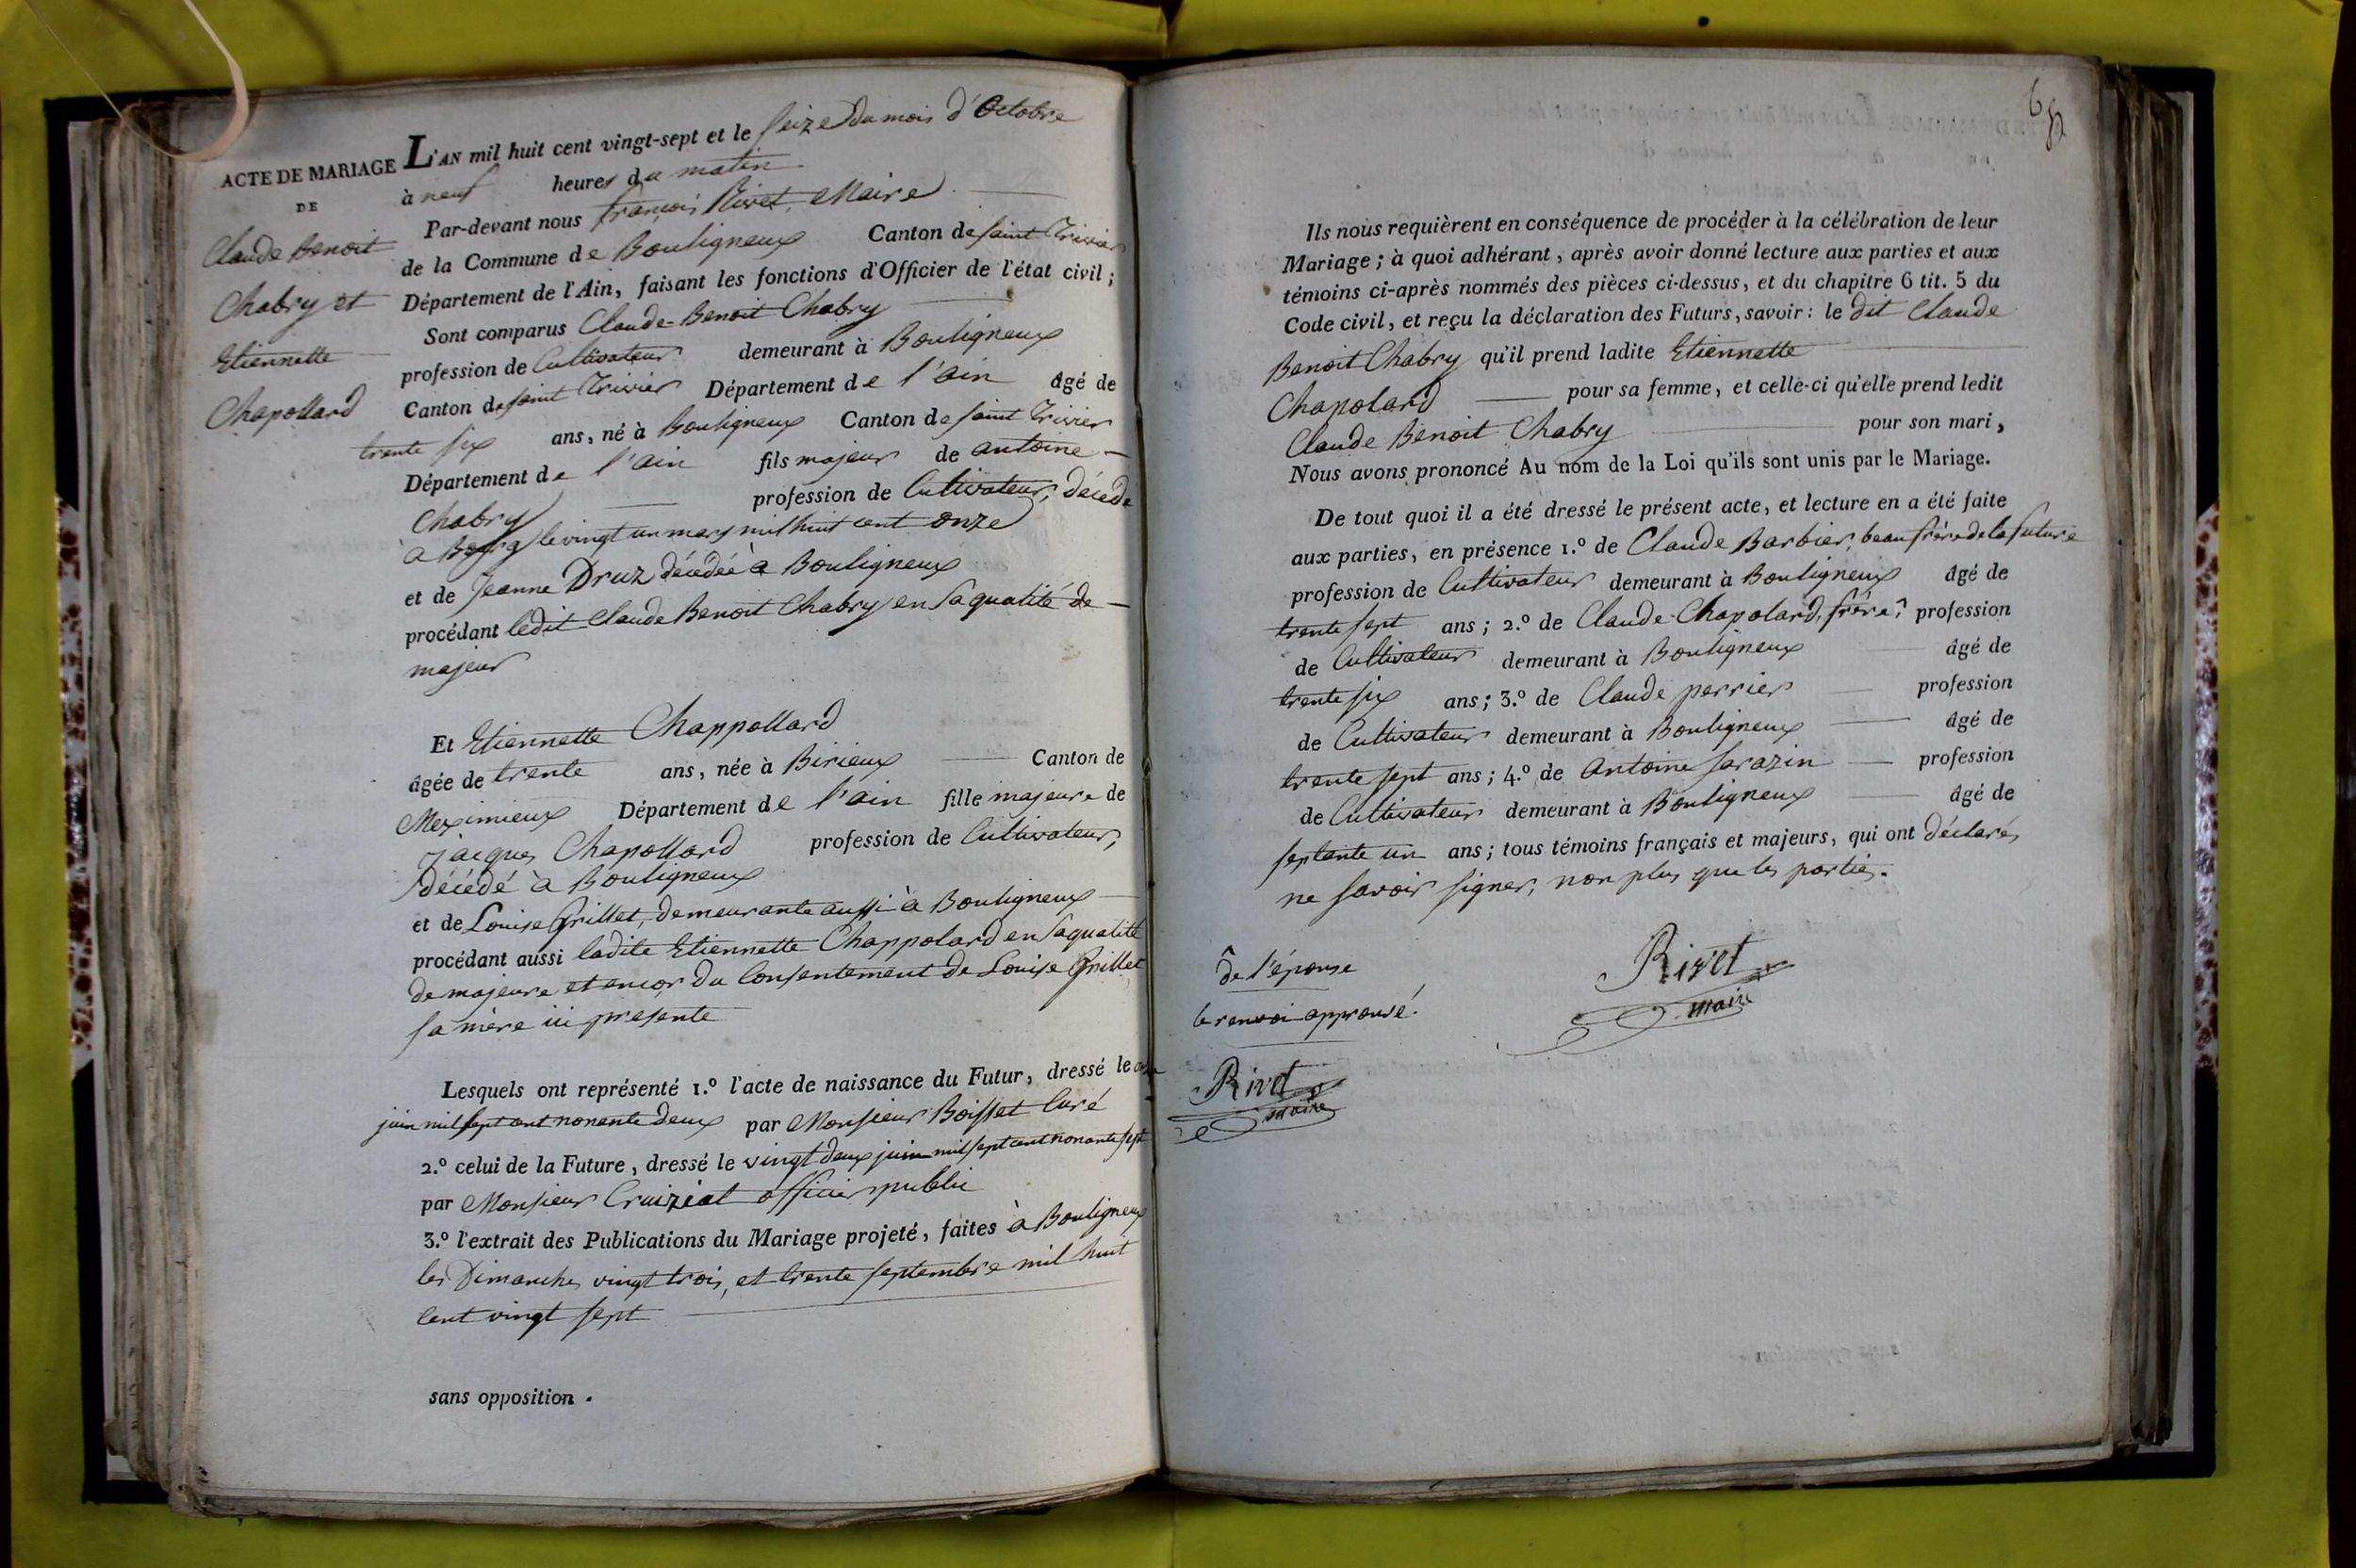 ACTE DE MARIAGE
DE
Claude Benoit
Chabry et
Etiennette
Chapollard
L'AN mil huit cent vingt-sept et le seize du mois d'Octobre
à neuf heures du matin
Par-devant nous françois Rivet, Maire
de la Commune de Bouligneux Canton de saint Trivier
Département de l'Ain, faisant les fonctions d'Officier de l'état civil ;
Sont comparus Claude-Benoit Chabry
profession de Cultivateur demeurant à Bouligneux
Canton de saint Trivier Département de l'ain âgé de
trente six ans, né à Bouligneux Canton de saint Trivier
Département de l'ain fils majeur de antoine
Chabry profession de Cultivateur, décédé
à Bourg le vingt un mars mil huit cent onze
et de Jeanne Druz décédée à Bouligneux
procédant ledit Claude Benoit Chabry en sa qualité de
majeur
Et Etiennette Chappollard
âgée de trente ans, née à Birieux Canton de
Meximieux Département de l'ain fille majeure de
jacques Chapollard profession de Cultivateur,
décédé à Bouligneux
et de Louise Grillet, demeurante aussi à Bouligneux
procédant aussi ladite Etiennette Chappolard en sa qualité
de majeure et encor du Consentement de Louise Grillet
sa mère ici presente
Lesquels ont représenté 1.º l'acte de naissance du Futur, dressé le
juin mil sept cent nonante deux par Monsieur Boisset Curé
2.º celui de la Future, dressé le vingt deux juin mil sept cent nonante sept
par Monsieur Cruiziat officier public
3.º l'extrait des Publications du Mariage projeté, faites à Bouligneux
les Dimanches vingt trois, et trente septembre mil huit
cent vingt sept
sans opposition .
65
Ils nous requièrent en conséquence de procéder à la célébration de leur
Mariage ; à quoi adhérant, après avoir donné lecture aux parties et aux
témoins ci-après nommés des pièces ci-dessus, et du chapitre 6 tit. 5 du
Code civil, et reçu la déclaration des Futurs, savoir : le dit Claude
Benoit Chabry qu'il prend ladite Etiennette
Chapolard pour sa femme, et celle-ci qu'elle prend ledit
Claude Benoit Chabry pour son mari,
Nous avons prononcé Au nom de la Loi qu'ils sont unis par le Mariage.
De tout quoi il a été dressé le présent acte, et lecture en a été faite
aux parties, en présence 1.º de Claude Barbier, beau frère de la future
profession de Cultivateur demeurant à Bouligneux âgé de
trente sept ans ; 2.º de Claude Chapolard, frère, profession
de Cultivateur demeurant à Bouligneux âgé de
trente six ans ; 3.º de Claude perrier profession
de Cultivateur demeurant à Bouligneux âgé de
trente sept ans ; 4.º de Antoine Sarazin profession
de Cultivateur demeurant à Bouligneux âgé de
septante un ans ; tous témoins français et majeurs, qui ont déclarés
ne savoir signer, non plus que les parties.
de l'épouse
le renvoi approuvé.
Rivet
maire
Rivet
maire